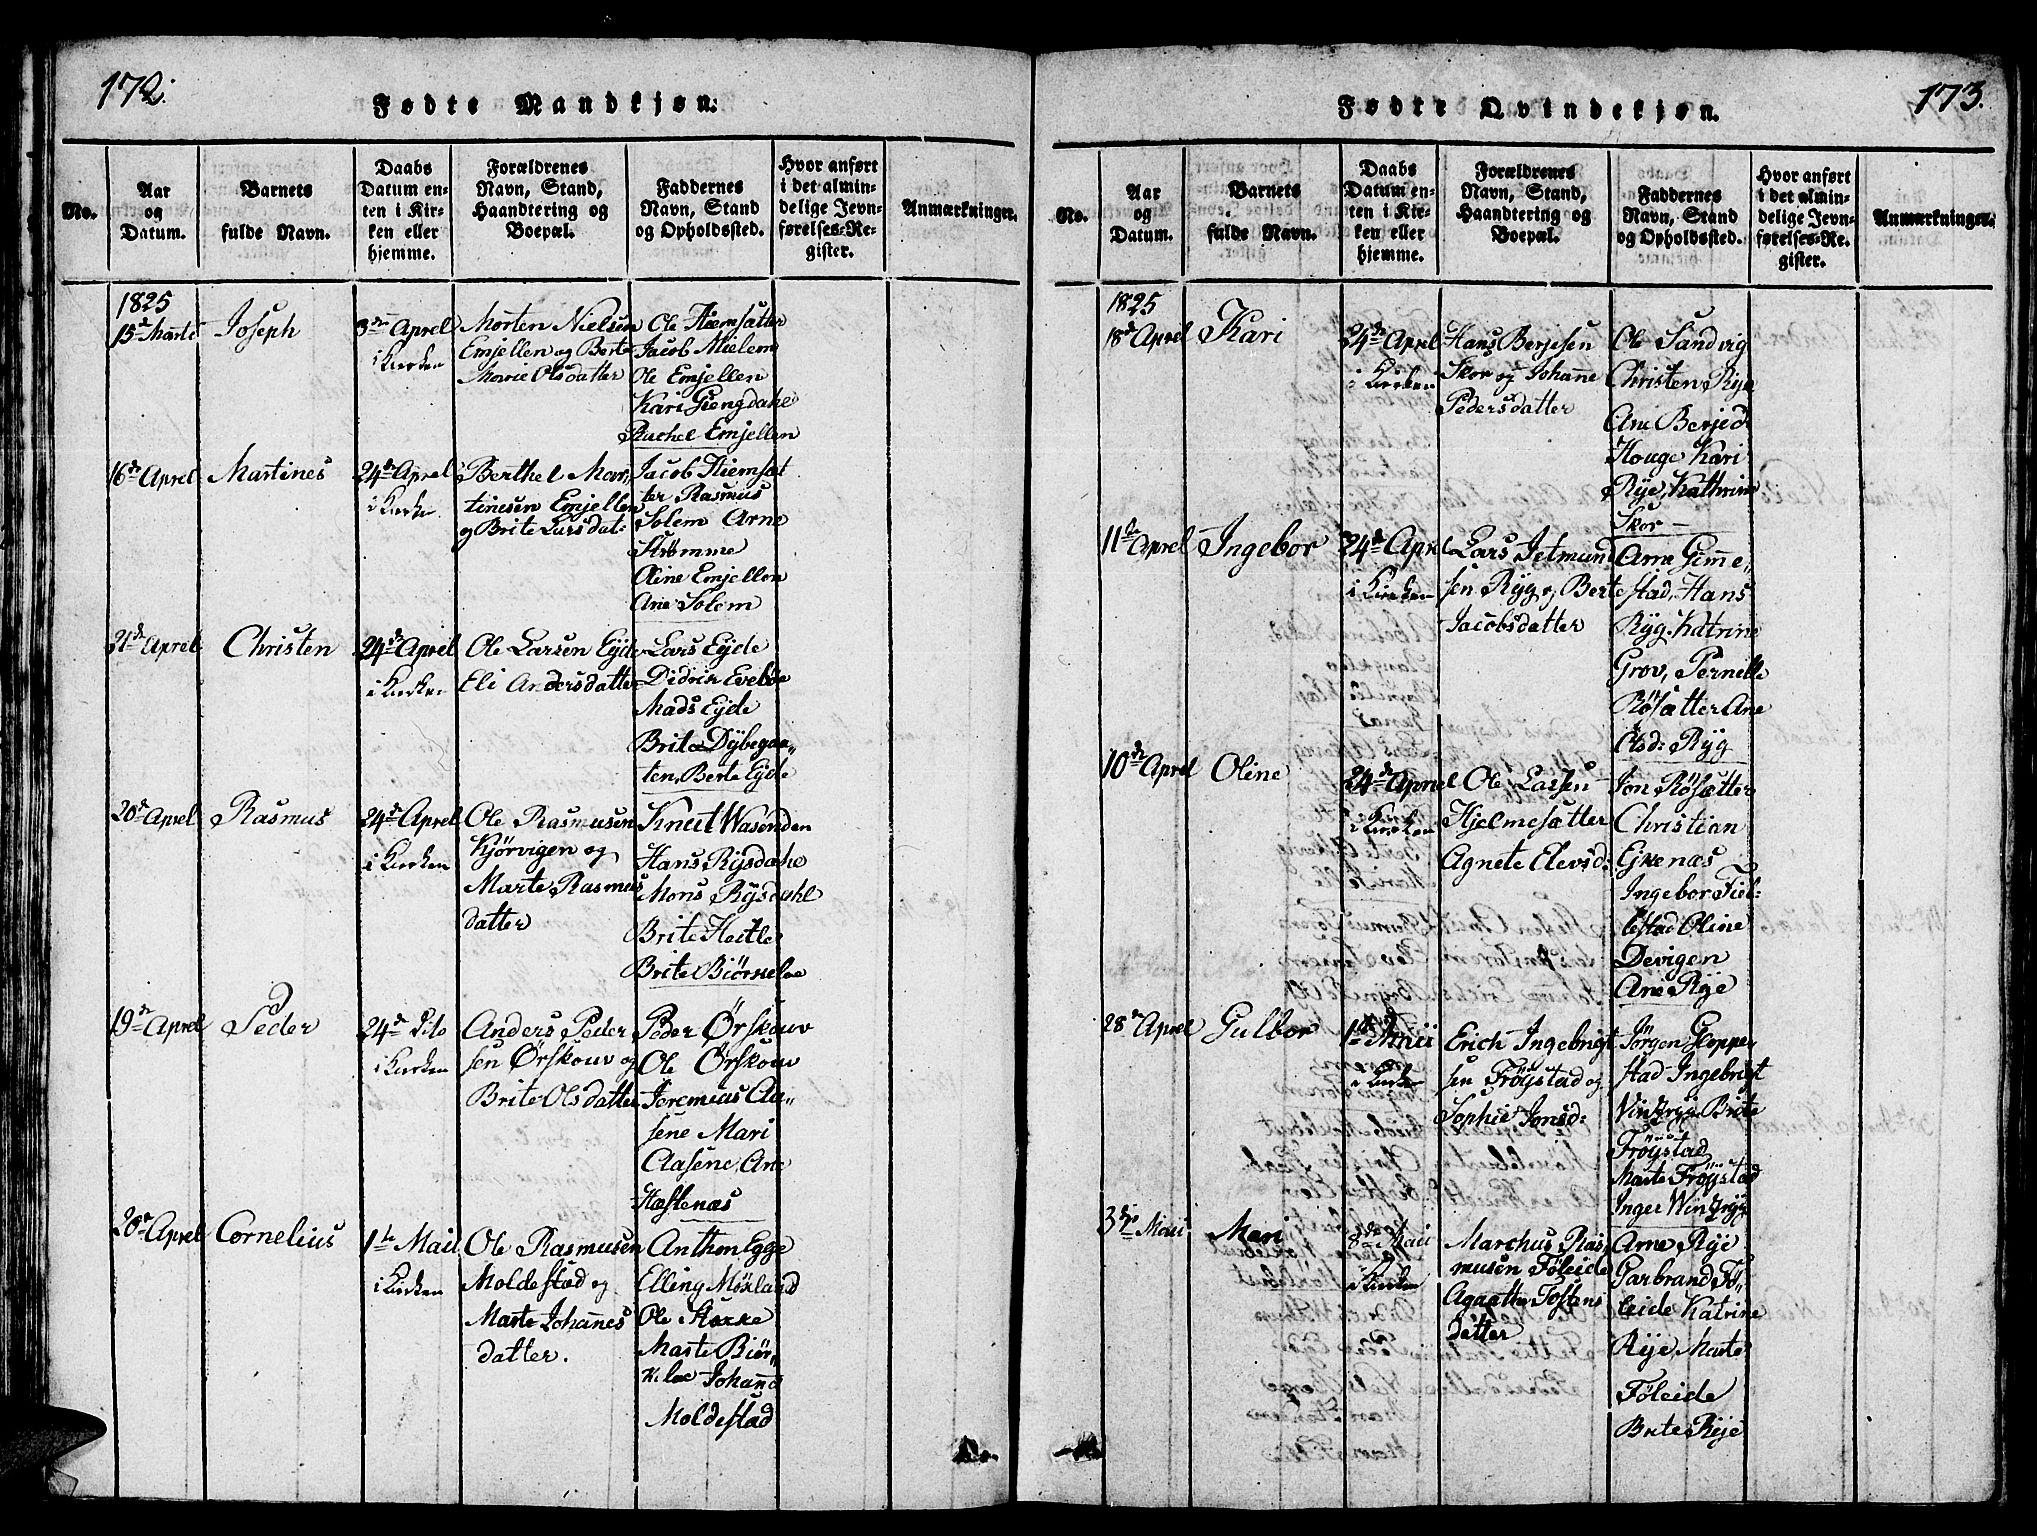 172.
Fødte Mandkjøn.
No.
Aar
og
Datum.
Barnets
fulde Navn.
Daabs
Datum en-
ten i Kir-
ken eller
hjemme.
Forældrenes
Navn, Stand,
Haandtering og
Boepæl.
Faddernes
Navn, Stand
og Opholdssted.
Hvor anført
i det almin-
delige Jevn-
førelses-Re-
gister.
Anmærkninger.
1825
15de Martz
Joseph
3die Aprel
i Kirken
Morten Nielsen
Emjellen og Berte
Marie Olsdatter
Ole Hiemsætter
Jacob Mielem
Ole Emjellen
Kari Giengdahe
Rachel Emjellen
16de Aprel
Martines
24de Aprel
i Kirken
Berthel Mar„
tinesen Emjellen
og Brite Larsdat:
Jacob Hiemsæt
ter Rasmus
Solem Arne
Strømme
Oline Emjellen
Ane Solem
21de Aprel
Christen
24de Aprel
i Kirken
Ole Larsen Eyde
Eli Andersdatter
Lars Eyde
Didrik Evebøe
Mads Eyde
Brite Dybegaa„
ten, Berte Eyde
20de Aprel
Rasmus
24de Aprel
i Kirken
Ole Rasmusen
Kjørvigen og
Marte Rasmus
datter
Knut Wasenden
Hans Rysdahe
Mons Rysdahl
Brite Heitle
Brite Biørkeloe
19de Aprel
Peder
24de Dito
i Kirken
Anders Peder
sen Ørskouv og
Brite Olsdatter
Peder Ørskouv
Ole Ørskouv
Jeremias Aa„
sene Mari
Aasene, Ane
Hæstenæs
20de Aprel
Cornelius
1ste Maii
i Kirken
Ole Rasmusen
Moldestad og
Marte Johannes
datter.
Anthon Egge
Elling Møkland
Ole Støkke
Marte Biør„
keloe Johanne
Moldestad
173.
Fødte Qvindekjøn.
No.
Aar
og
Datum.
Barnets
fulde Navn.
Daabs
Datum en-
ten i Kir-
ken eller
hjemme.
Forældrenes
Navn, Stand,
Haandtering og
Boepæl.
Faddernes
Navn, Stand
og Opholdssted.
Hvor anført
i det almin-
delige Jevn-
førelses-Re-
gister.
Anmærkninger.
1825
18de Aprel
Kari
24de Aprel
i Kirken
Hans Berjesen
Skor og Johanne
Pedersdatter
Ole Sandvig
Christen Rye
Ane Berjed:
Houge Kari
Rye, Kathrine
Skor
11de Aprel
Ingebor
24de Aprel
i Kirken
Lars Jetmund
sen Ryg og Berte
Jacobsdatter
Arne Gimme„
stad, Hans
Ryg. Katrine
Grov, Pernelle
Røsætter Ane
Olsd: Ryg
10de Aprel
Oline
24de Aprel
i Kirken
Ole Lassen
Hjelmesætter
Agnete Elevsd:
Jon Røsætter
Christian
Eykenæs
Ingebor Fiel:
lestad Oline
Devigen
Ane Rye
28de Aprel
Gulbor
1ste Maii
i Kirken
Erich Ingebrigt
sen Frøystad og
Sophie Jonsd:
Jørgen Gloppe
stad Ingebrigt
Brite
Frøystad
Marte Frøystad
Inger
3die Maii
Mari
8de Maii
i Kirken
Marchus Ras„
musen Føleide
Agaatte Tostens
datter
Arne Rye
Garbrand Fø„
leide Katrine
Rye, Marte
Føleide
Brite Rye